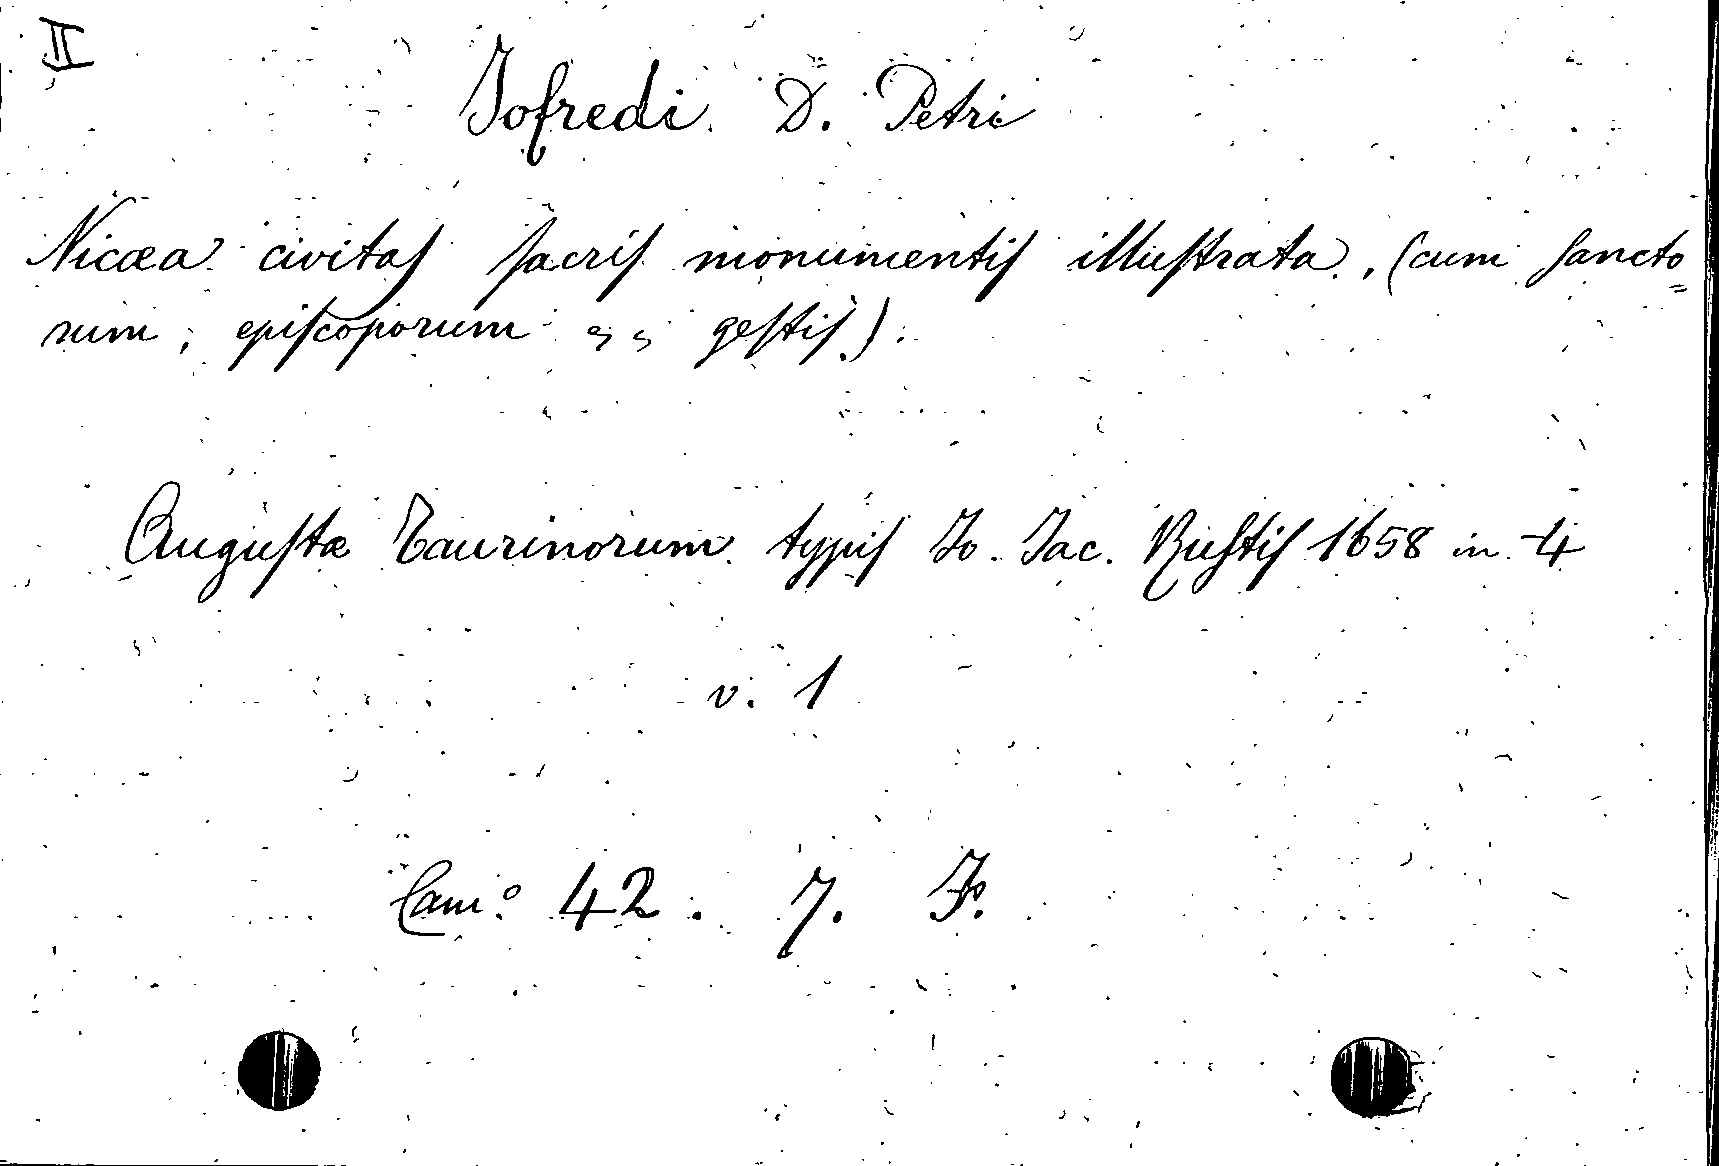 II
Jofredi D. Petri
Nicæa civitaſ ſacriſ monumentiſ illuſtrata. (cum ſancto=
rum, epiſcoporum „ „ geſtiſ).
Auguſtæ Taurinorum typiſ Jo. Jac. Ruſtiſ 1658 in 4
v. 1
Cam.º 42. 7. F.